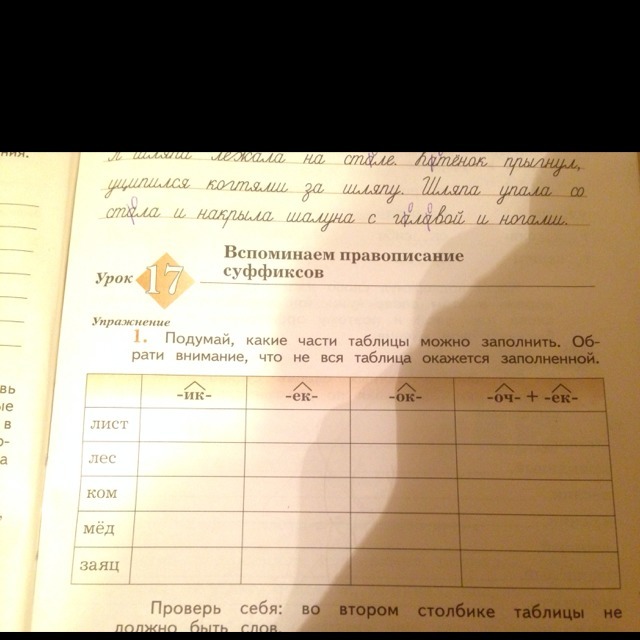 ния.
я шляпа лежала на стале. Катёнок прыгнул,
уципился когтями за шляпу. Шляпа упала со
стала и накрыла шалуна с галавой и ногами.
Урок 17
Вспоминаем правописание
суффиксов
Упражнение
1. Подумай, какие части таблицы можно заполнить. Об-
рати внимание, что не вся таблица окажется заполненной.
-ик- -ек- -ок- -оч- + -ек-
лист
лес
ком
мёд
заяц
вь
ые
в
о-
а
Проверь себя: во втором столбике таблицы не
должно быть слов.